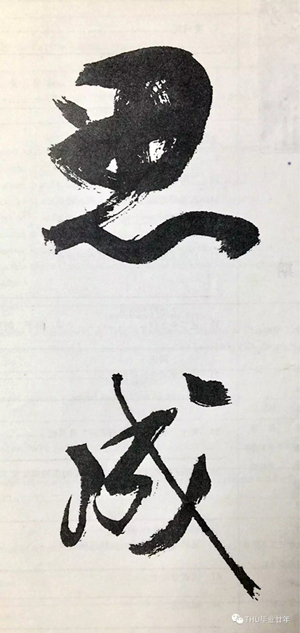 思
成
THU毕业廿年